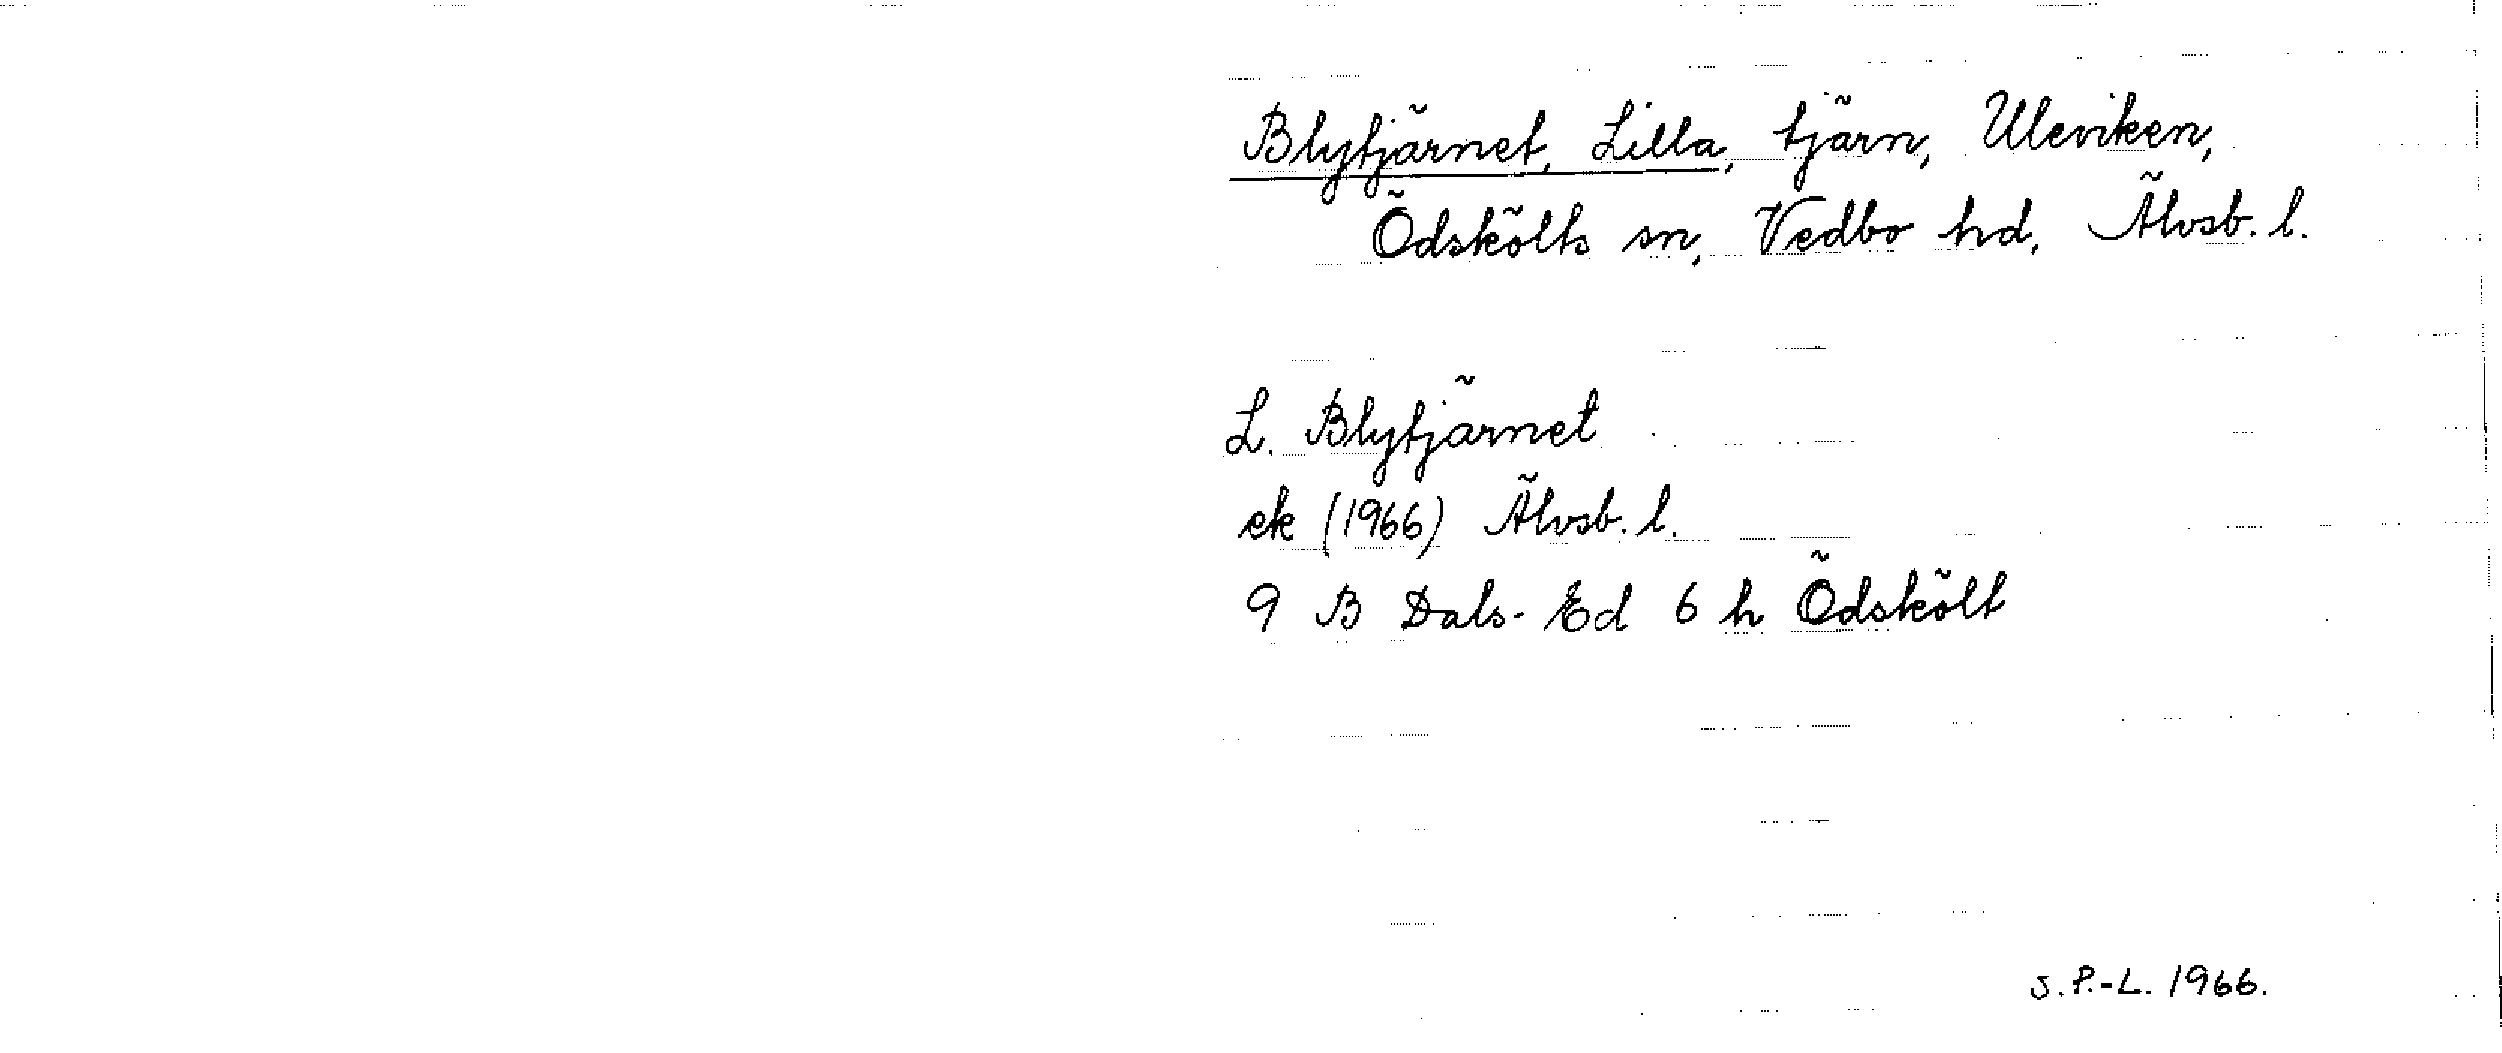 Blytjärnet, Lilla, tjärn, Uleviken,
Ödskölts sn, Vedbo hd, Älvsb. l.
L. Blytjärnet
ek (1966) Älvsb. l.
9 B Dals-Ed 6 h Ödskölt
S.P.-L. 1966.